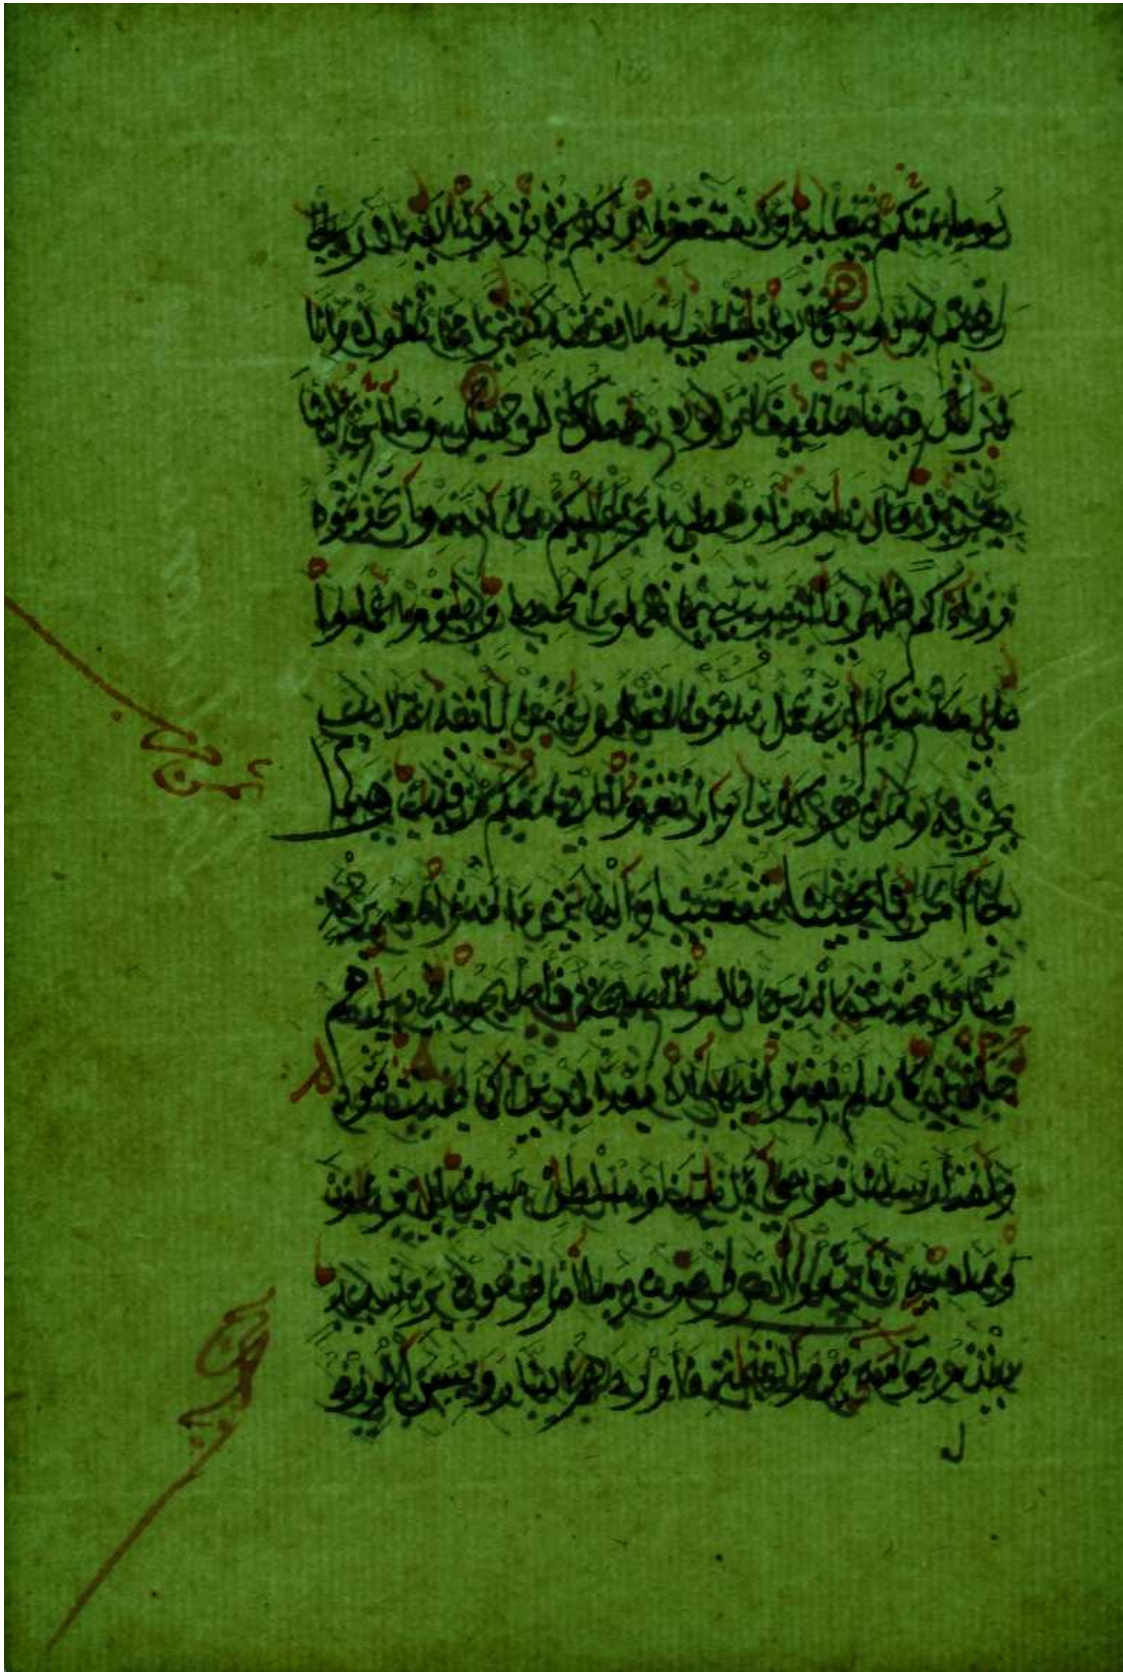 لوط منكم ببعيد واستغفروا ربكم ثم توبوا إليه إن ربي
رحيم ودود قالوا يشعيب ما نفقه كثيرا مما تقول وإنا
لنريك فينا ضعيفا ولولا رهطك لرجمنك وما أنت علينا
بعزيز قال يقوم أرهطي أعز عليكم من الله واتخذتموه
وراءكم ظهريا إن ربي بما تعملون محيط ويقوم اعملوا
على مكانتكم إني عمل سوف تعلمون من يأتيه عذاب
يخزيه ومن هو كذب وارتقبوا إني معكم رقيب ولما
جاء أمرنا نجينا شعيبا والذين ءامنوا معه برحمة
منا وأخذت الذين ظلموا الصيحة فأصبحوا في ديرهم
جثمين كأن لم يغنوا فيها ألا بعدا لمدين كما بعدت ثمود
ولقد أرسلنا موسى بآيتنا وسلطن مبين إلى فرعون
وملإيه فاتبعوا أمر فرعون وما أمر فرعون برشيد
يقدم قومه يوم القيمة فأوردهم النار وبئس الورد